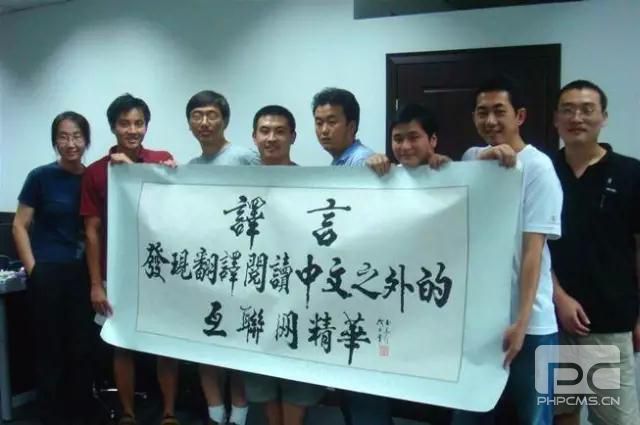 譯言
發現翻譯閱讀中文之外的
互聯网精華
PC
PHPCMS.CN